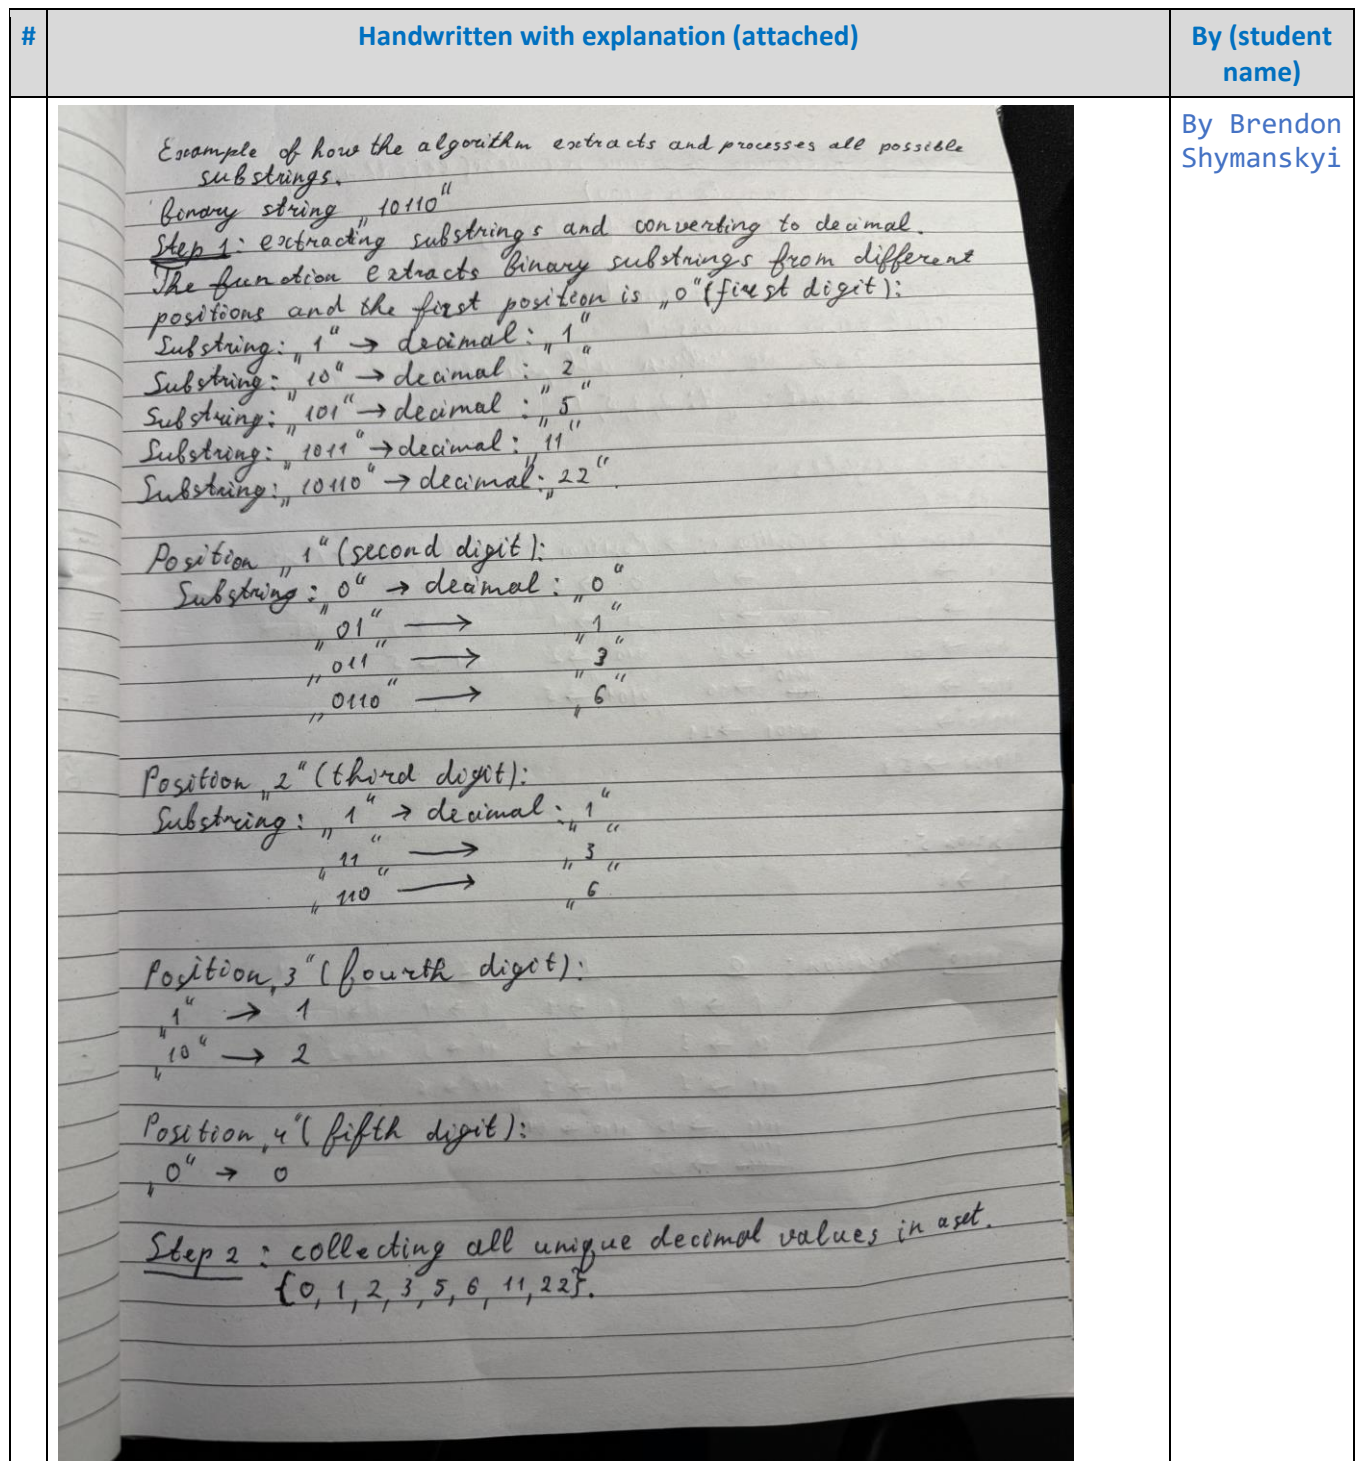 #
Handwritten with explanation (attached)
By (student
name)
By Brendon
Shymanskyi
Example of how the algorithm extracts and processes all possible
substrings.
Binary string „10110“
Step 1: extracting substrings and converting to decimal.
The function extracts binary substrings from different
positions and the first position is „0“ (first digit):
Substring: „1“ → decimal: „1“
Substring: „10“ → decimal: „2“
Substring: „101“ → decimal: „5“
Substring: „1011“ → decimal: „11“
Substring: „10110“ → decimal: „22“.
Position „1“ (second digit):
Substring: „0“ → decimal: „0“
„01“ → „1“
„011“ → „3“
„0110“ → „6“
Position „2“ (third digit):
Substring: „1“ → decimal: „1“
„11“ → „3“
„110“ → „6“
Position „3“ (fourth digit):
„1“ → 1
„10“ → 2
Position „4“ (fifth digit):
„0“ → 0
Step 2: collecting all unique decimal values in a set.
{0, 1, 2, 3, 5, 6, 11, 22}.